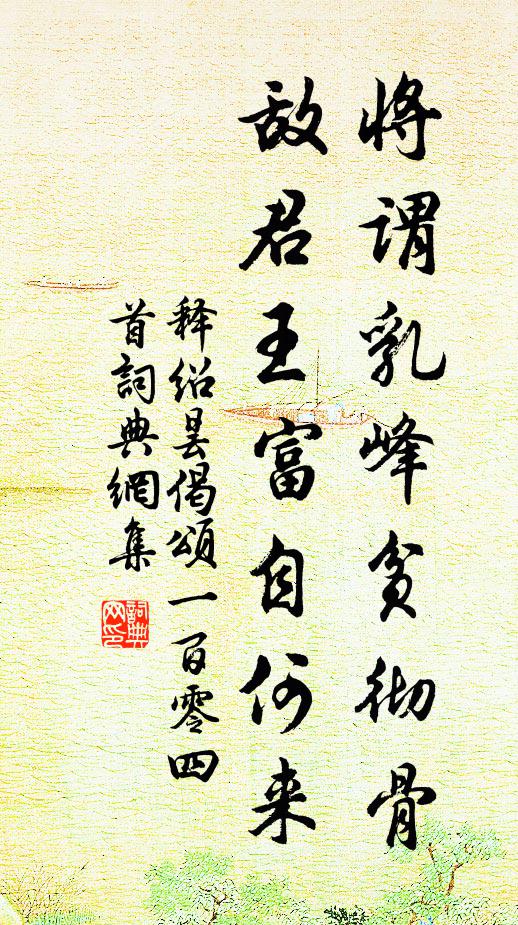 将谓乳峰贫彻骨
敌君王富自何来
释绍昙偈颂一百零四
首詞典網集
詞典
网印